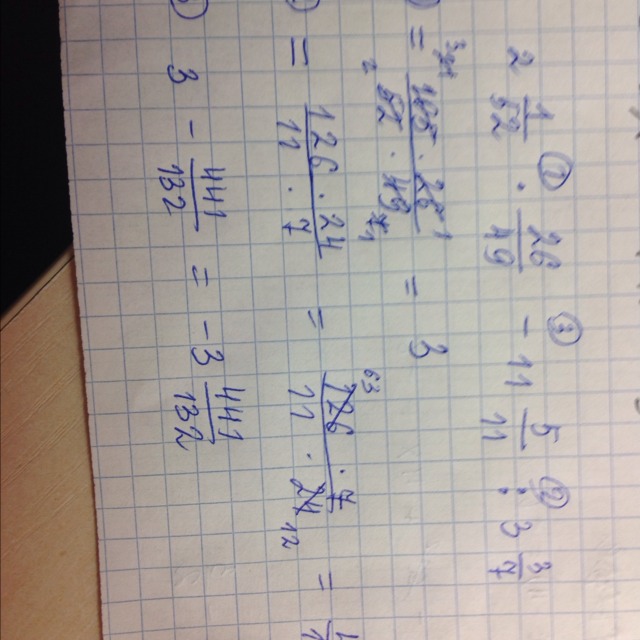 ① ③ ②
2 1/52 · 26/49 - 11 5/11 : 3 3/7
= 105 · 26 / 52 · 49 = 3
= 126 · 24 / 11 · 7 = 126 · 7 / 11 · 24 =
3 - 441/132 = -3 441/132